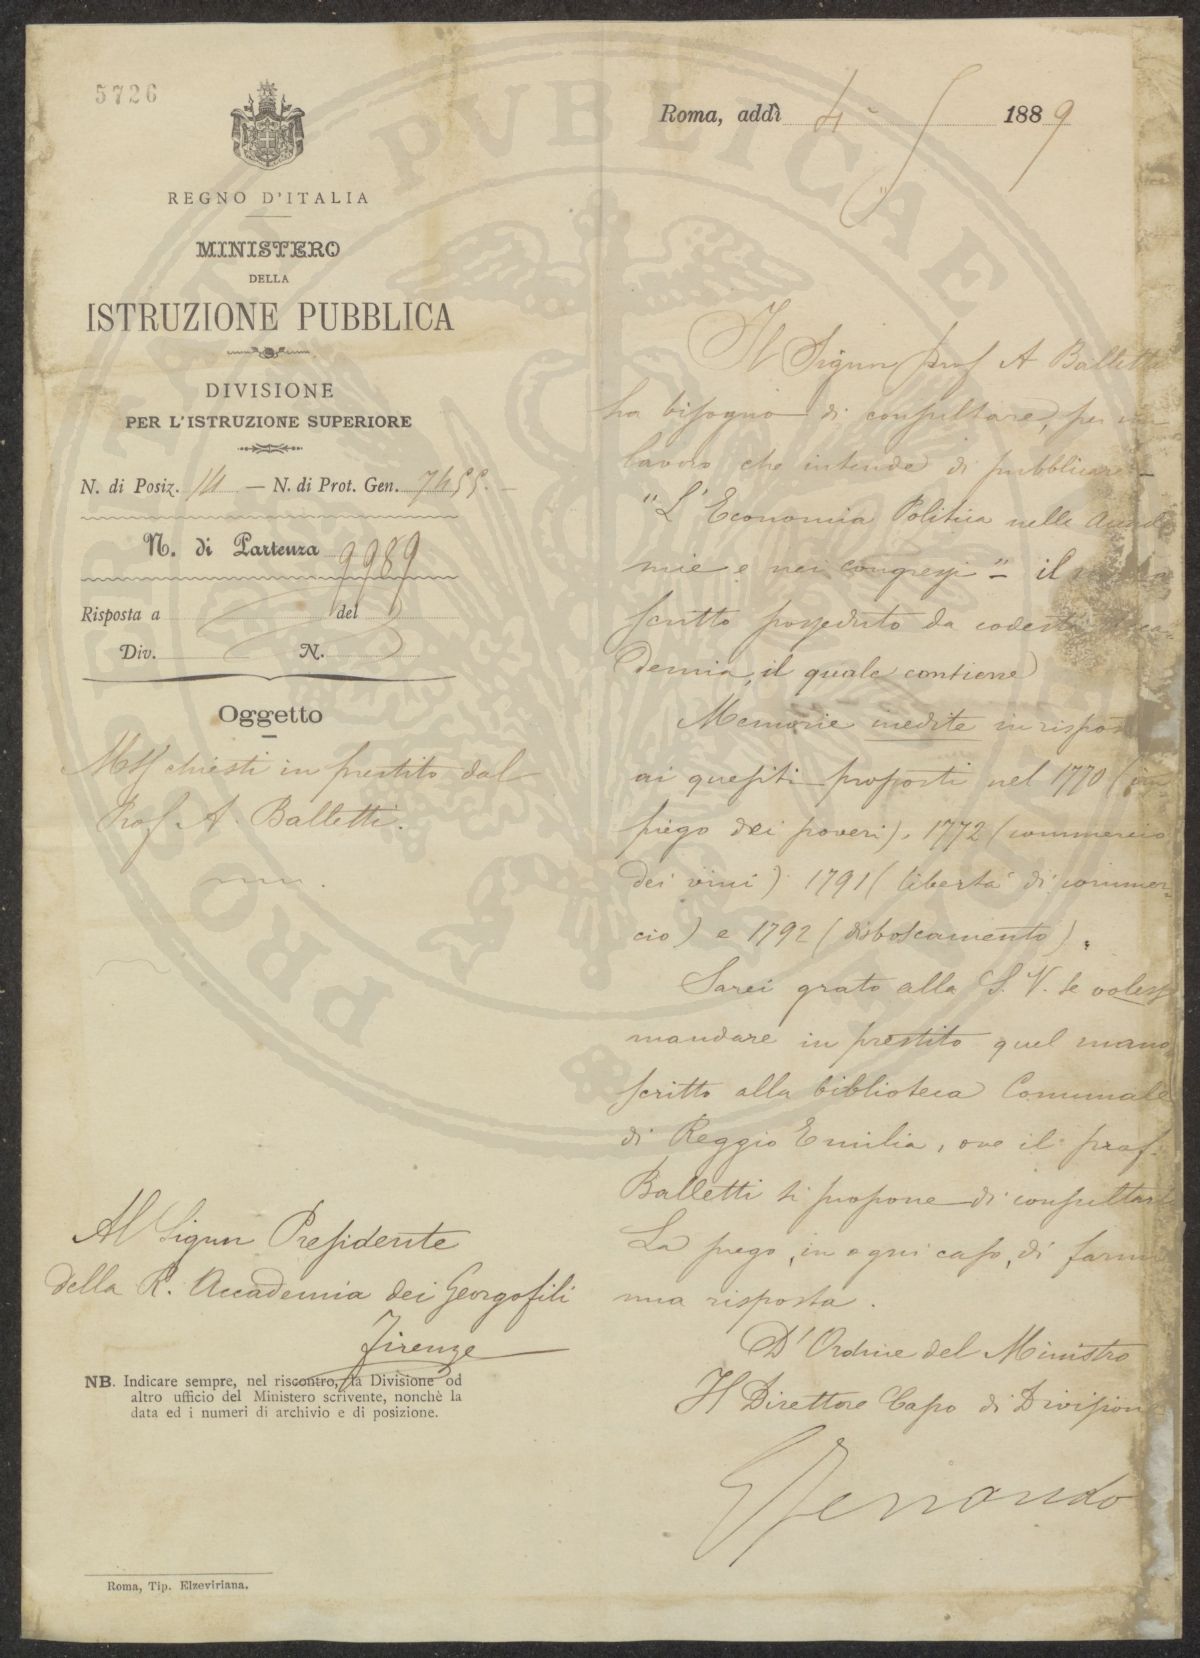 5726
REGNO D'ITALIA
MINISTERO
DELLA
ISTRUZIONE PUBBLICA
DIVISIONE
PER L'ISTRUZIONE SUPERIORE
N. di Posiz. 14 — N. di Prot. Gen. 7455.
N. di Partenza 9989
Risposta a del
Div. N.
Oggetto
Mss chiesti in prestito dal
Prof. A. Balletti.
Al Signor Presidente
della R. Accademia dei Georgofili
Firenze
NB. Indicare sempre, nel riscontro, la Divisione od
altro ufficio del Ministero scrivente, nonchè la
data ed i numeri di archivio e di posizione.
Roma, Tip. Elzeviriana.
Roma, addì 4 5 1889
Il Signor prof A Balletti
ha bisogno di consultare, per un
lavoro che intende di pubblicare –
"L'Economia Politica nelle Accade
mie e nei congressi" – il
scritto posseduto da codesta Acca-
demia, il quale contiene
Memorie inedite in rispos
ai quesiti proposti nel 1770 (im
piego dei poveri), 1772 (commercio
dei vini) 1791 (libertà di commer-
cio) e 1792 (disboscamento).
Sarei grato alla S. V. se voless
mandare in prestito quel mano
scritto alla biblioteca Comunale
di Reggio Emilia, ove il prof.
Balletti si propone di consultar
La prego, in ogni caso, di farmi
una risposta.
D'Ordine del Ministro
Il Direttore Capo di Divisione
GFerrando
PRIVATAE PVBLICAE PROSPERITATIS